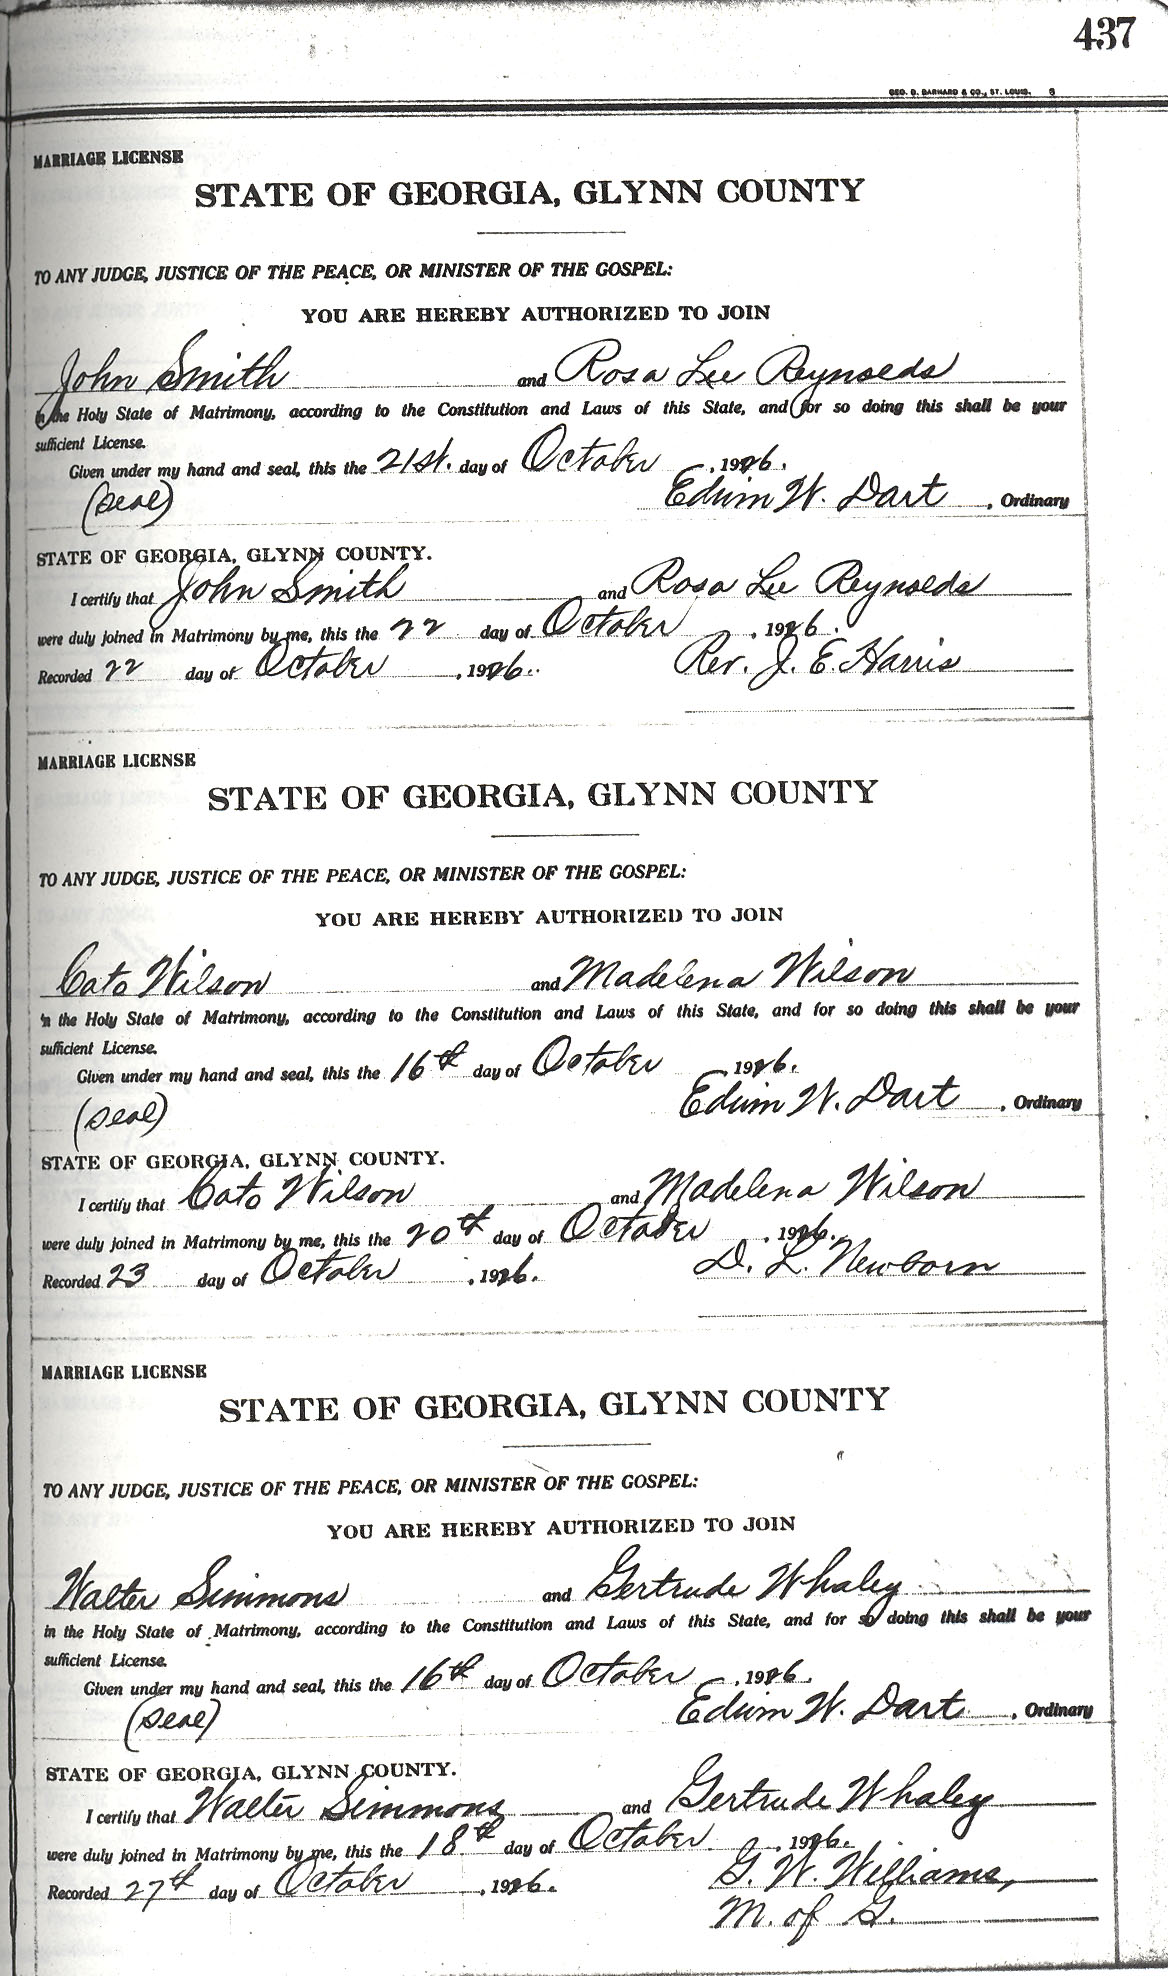 437
GEO. D. BARNARD & CO., ST. LOUIS. S
MARRIAGE LICENSE
STATE OF GEORGIA, GLYNN COUNTY
TO ANY JUDGE, JUSTICE OF THE PEACE, OR MINISTER OF THE GOSPEL:
YOU ARE HEREBY AUTHORIZED TO JOIN
John Smith and Rosa Lee Reynolds
in the Holy State of Matrimony, according to the Constitution and Laws of this State, and for so doing this shall be your
sufficient License.
Given under my hand and seal, this the 21st. day of October, 1926.
(Seal) Edwin W. Dart, Ordinary
STATE OF GEORGIA, GLYNN COUNTY.
I certify that John Smith and Rosa Lee Reynolds
were duly joined in Matrimony by me, this the 22 day of October, 1926.
Recorded 22 day of October, 1926. Rev. J. E. Harris
MARRIAGE LICENSE
STATE OF GEORGIA, GLYNN COUNTY
TO ANY JUDGE, JUSTICE OF THE PEACE, OR MINISTER OF THE GOSPEL:
YOU ARE HEREBY AUTHORIZED TO JOIN
Cato Wilson and Madelena Wilson
in the Holy State of Matrimony, according to the Constitution and Laws of this State, and for so doing this shall be your
sufficient License.
Given under my hand and seal, this the 16th day of October, 1926.
(Seal) Edwin W. Dart, Ordinary
STATE OF GEORGIA, GLYNN COUNTY.
I certify that Cato Wilson and Madelena Wilson
were duly joined in Matrimony by me, this the 20th day of October, 1926.
Recorded 23 day of October, 1926. D. L. Newborn
MARRIAGE LICENSE
STATE OF GEORGIA, GLYNN COUNTY
TO ANY JUDGE, JUSTICE OF THE PEACE, OR MINISTER OF THE GOSPEL:
YOU ARE HEREBY AUTHORIZED TO JOIN
Walter Simmons and Gertrude Whaley
in the Holy State of Matrimony, according to the Constitution and Laws of this State, and for so doing this shall be your
sufficient License.
Given under my hand and seal, this the 16th day of October, 1926.
(Seal) Edwin W. Dart, Ordinary
STATE OF GEORGIA, GLYNN COUNTY.
I certify that Walter Simmons and Gertrude Whaley
were duly joined in Matrimony by me, this the 18th day of October, 1926.
Recorded 27th day of October, 1926. G. W. Williams,
M. of G.